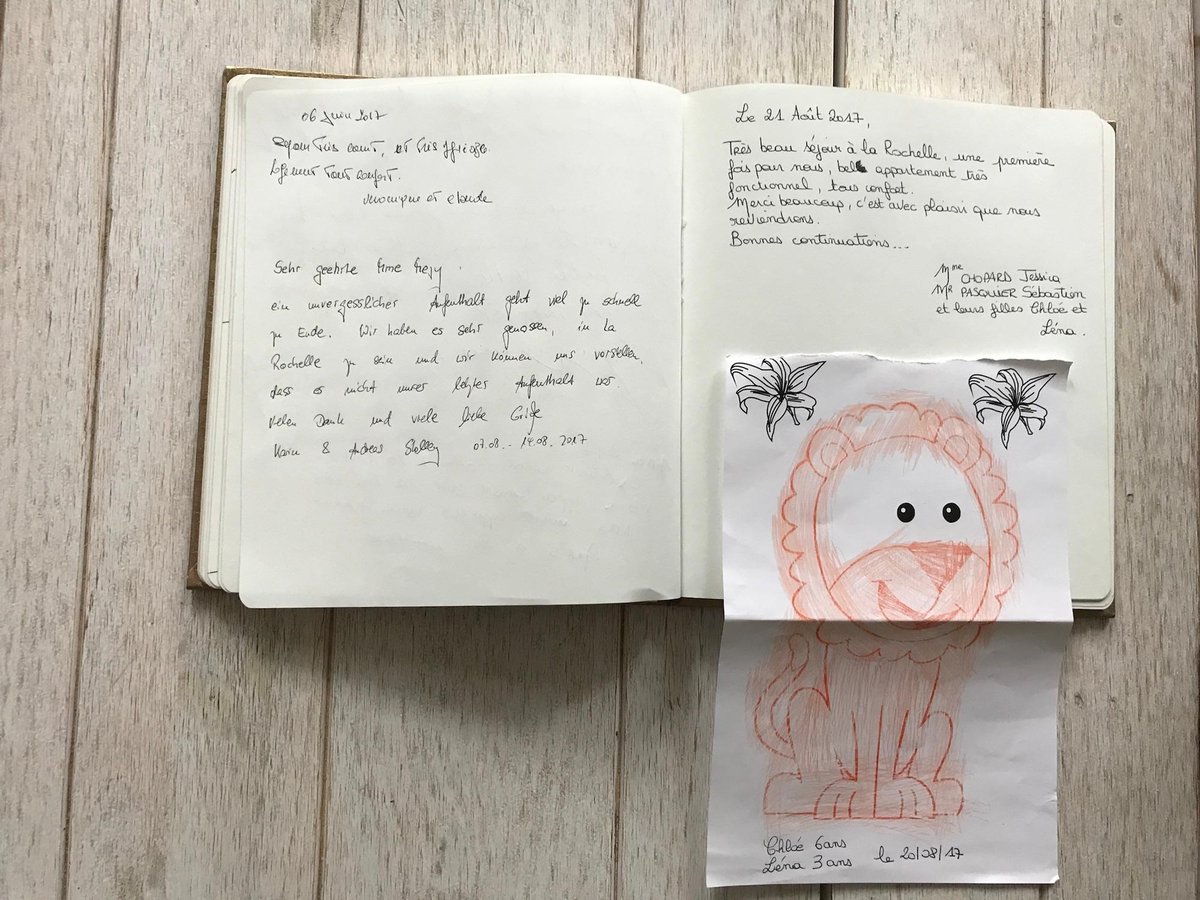 06 Juin 2017
Séjour très court, et très
Logement tout confort.
Monique et Claude
Sehr geehrte Mme
ein unvergesslicher Aufenthalt geht viel zu schnell
zu Ende. Wir haben es sehr genossen, in La
Rochelle zu sein und wir können uns vorstellen,
dass es nicht unser letzter Aufenthalt war.
Vielen Dank und viele liebe Grüße
Karin & Andreas 07.08. - 14.08.2017
Le 21 Août 2017,
Très beau séjour à la Rochelle, une première
fois pour nous, bel appartement très
fonctionnel, tous confort.
Merci beaucoup, c'est avec plaisir que nous
reviendrons.
Bonnes continuations...
Mme CHOPARD Jessica
MR PASQUIER Sébastien
et leurs filles Chloé et
Léna.
Chloé 6ans
Léna 3ans le 20/08/17